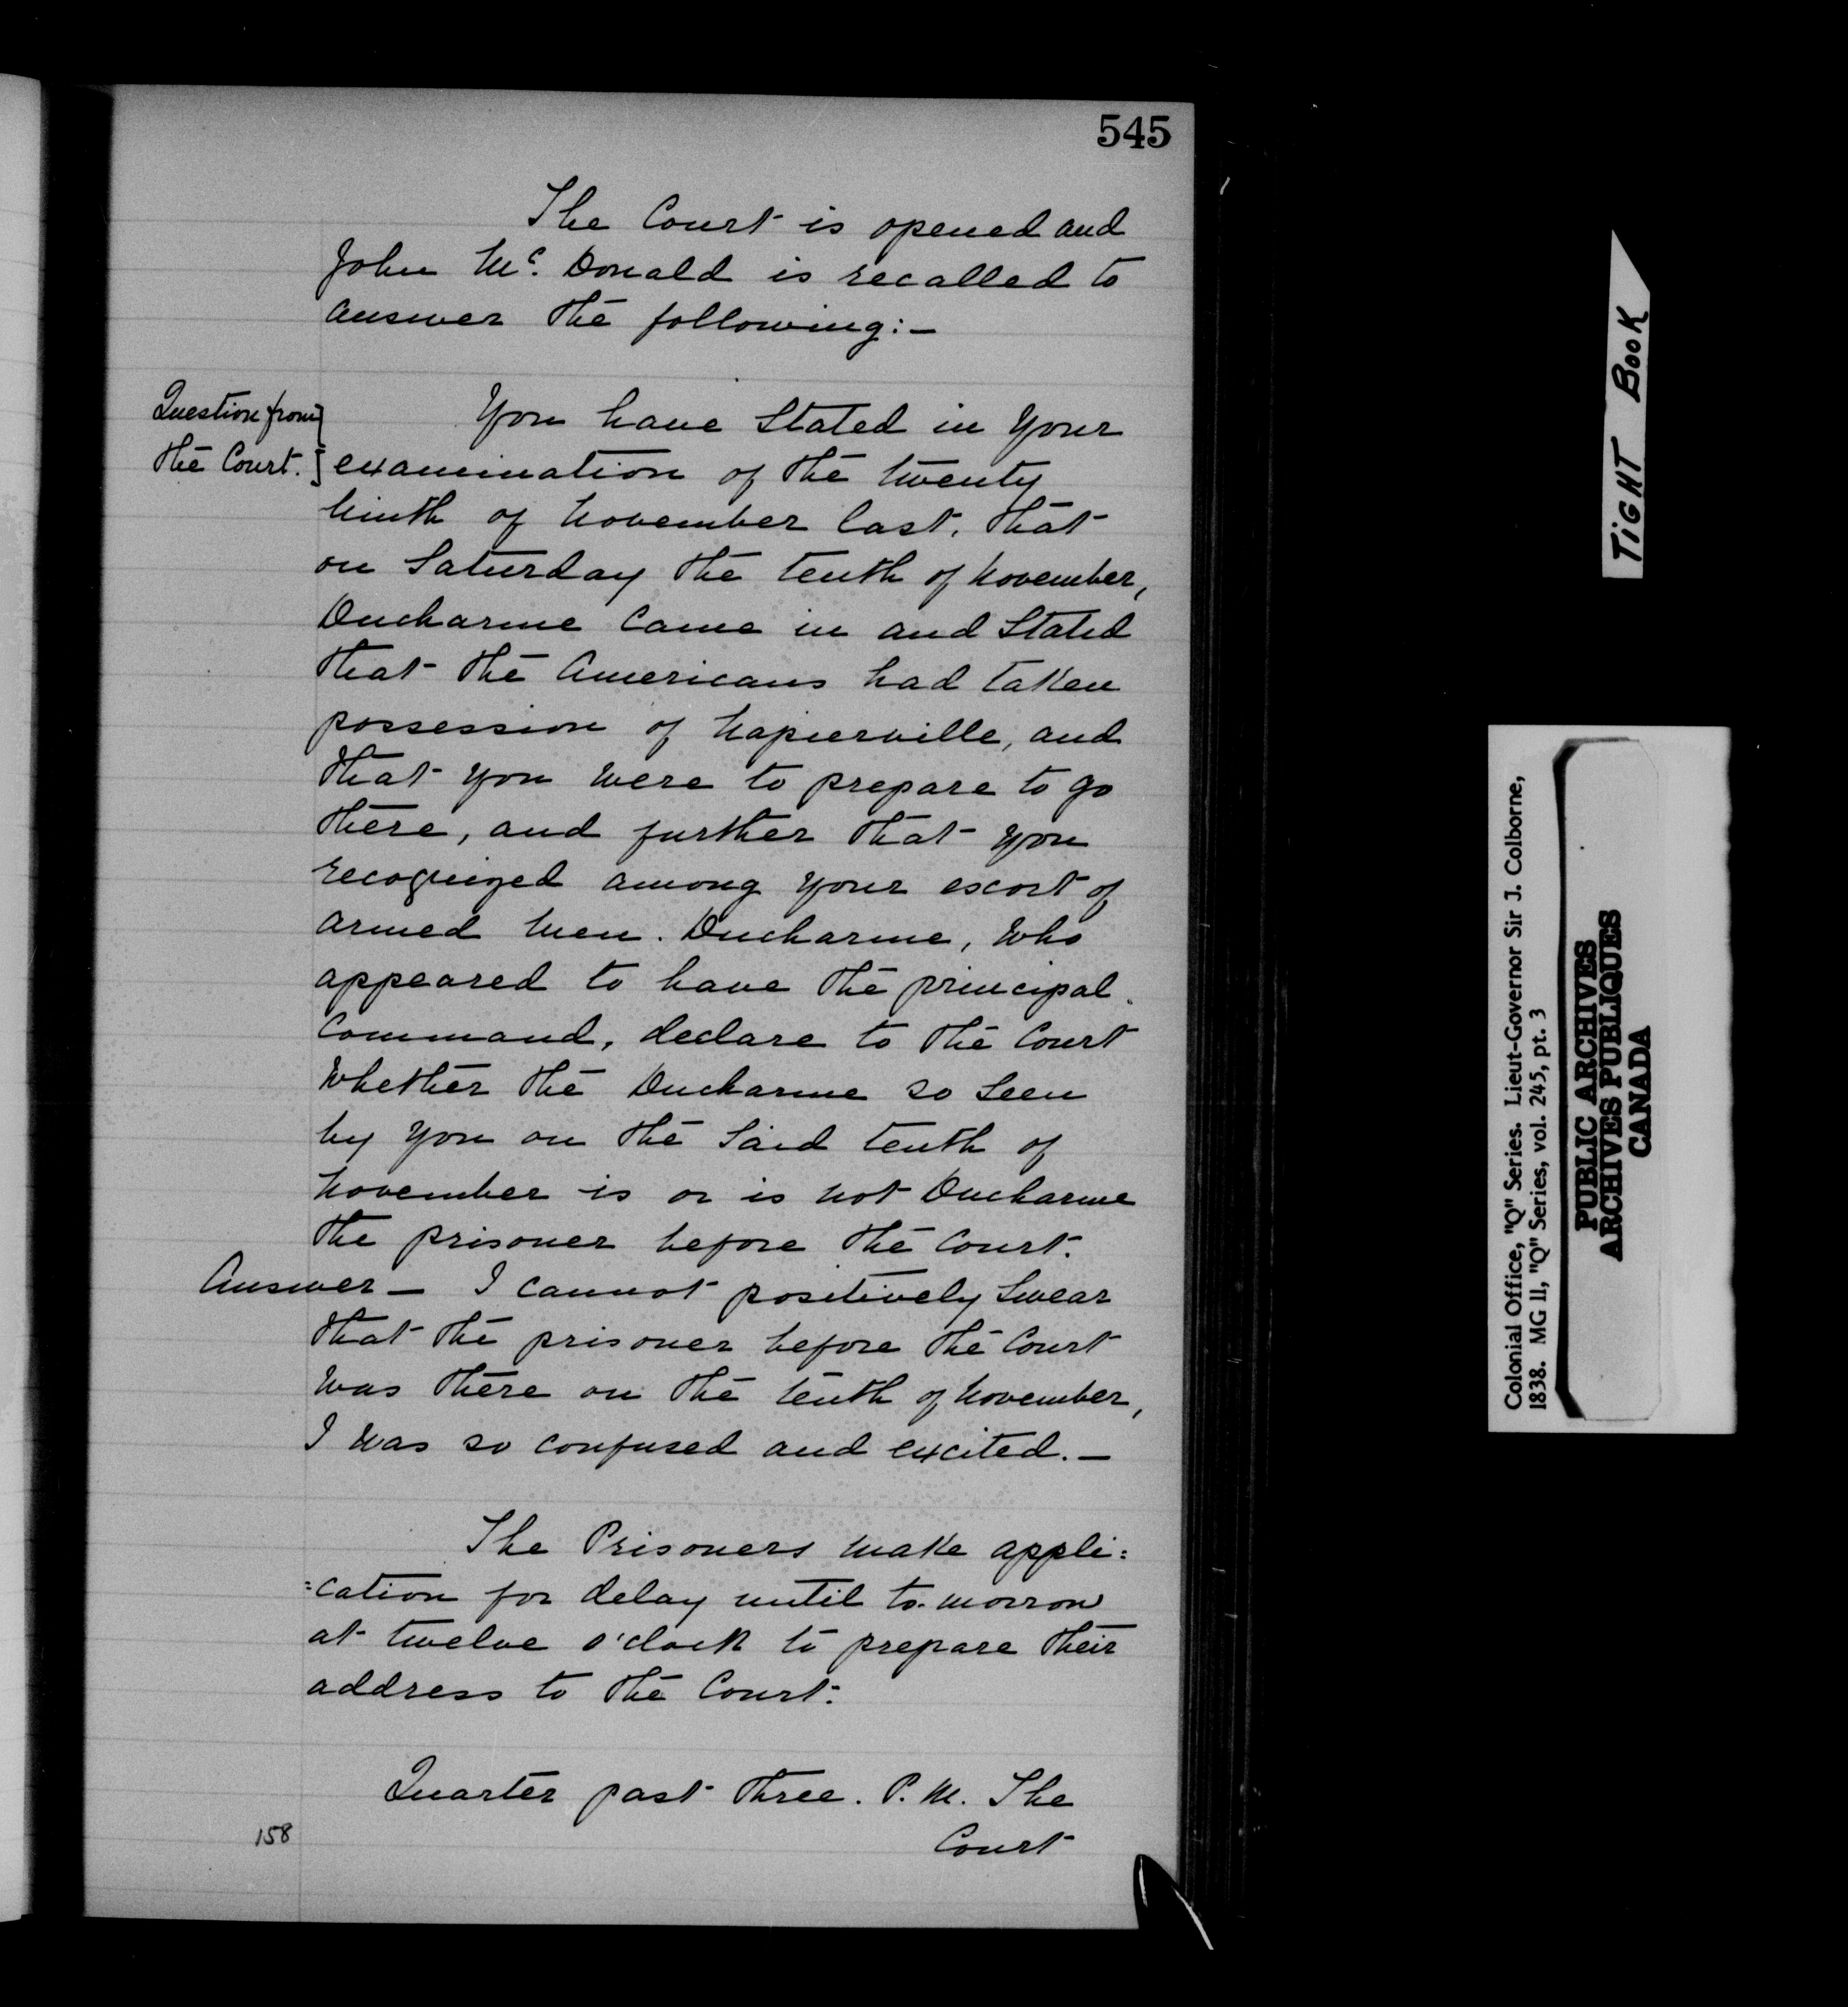 545
The Court is opened and
John Mc. Donald is recalled to
answer the following:—
Question from
the Court.
You have Stated in Your
examination of the twenty
ninth of November last, that
on Saturday the tenth of November,
Ducharme Came in and Stated
that the Americans had taken
possession of Napierville, and
that you were to prepare to go
there, and further that you
recognized among your escort of
armed men. Ducharme, Who
appeared to have the principal
Command, declare to the Court
Whether the Ducharme so Seen
by you on the Said tenth of
November is or is not Ducharme
the prisoner before the Court.
Answer — I cannot positively Swear
that the prisoner before the Court
was there on the tenth of November,
I was so confused and excited. —
The Prisoners make appli=
=cation for delay until to-morrow
at twelve o'clock to prepare their
address to the Court.
Quarter past three. P. M. The
Court
158
TIGHT BOOK
Colonial Office, "Q" Series. Lieut-Governor Sir J. Colborne,
1838. MG 11, "Q" Series, vol. 245, pt. 3
PUBLIC ARCHIVES
ARCHIVES PUBLIQUES
CANADA